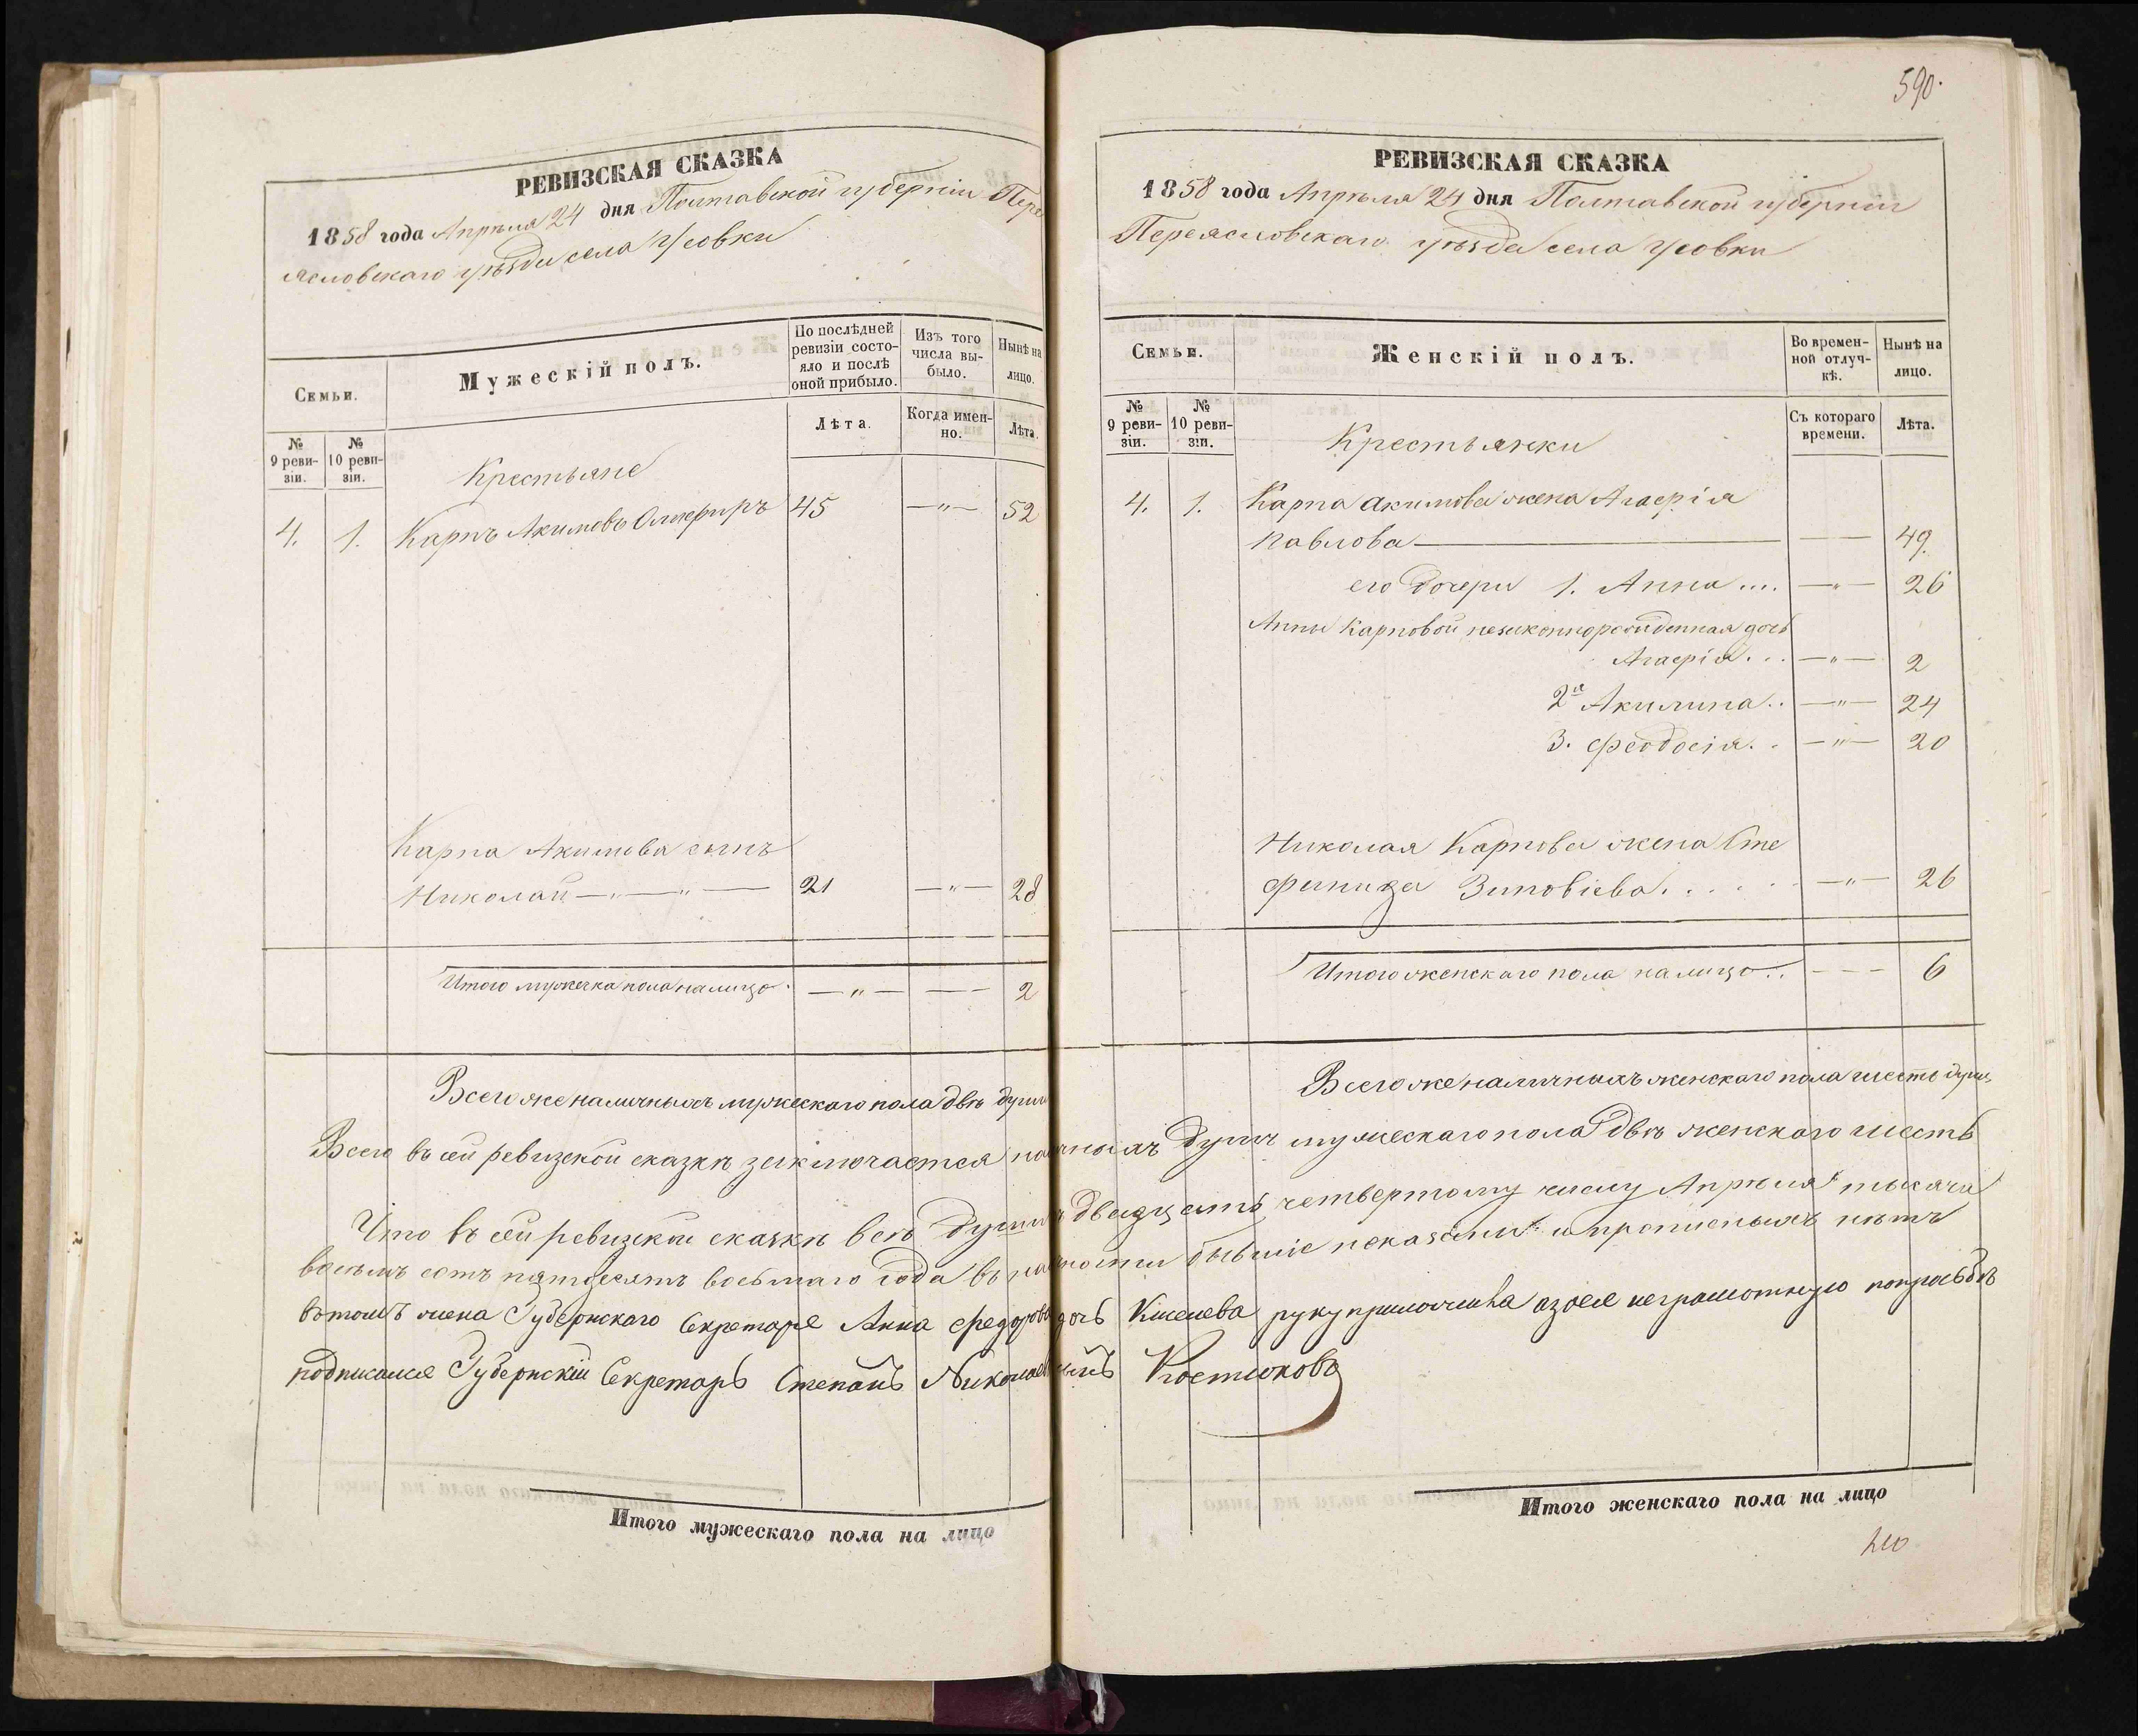 РЕВИЗСКАЯ СКАЗКА
1858 года Апрѣля 24 дня Полтавской губерніи Пере
ясловскаго уѣзда села Усовки
Семьи.
Мужескій полъ.
По послѣдней ревизіи состояло и послѣ оной прибыло.
Изъ того числа выбыло.
Нынѣ на лицо.
№ 9 ревизіи.
№ 10 ревизіи.
Лѣта.
Когда именно.
Лѣта.
Крестьяне
4. 1. Карпъ Акимовъ 45 —"— 52
Карпа Акимова сынъ
Николай —"—"— 21 —"— 28
Итого мужеска пола налицо. —"— — — 2
Всего же наличныхъ мужескаго пола двѣ души
590.
РЕВИЗСКАЯ СКАЗКА
1858 года Апрѣля 24 дня Полтавской губерніи
Переясловскаго уѣзда села Усовки
Семьи.
Женскій полъ.
Во временной отлучкѣ.
Нынѣ на лицо.
№ 9 ревизіи.
№ 10 ревизіи.
Съ котораго времени.
Лѣта.
Крестьянки
4. 1. Карпа Акимова жена Агафія
Павлова — — — 49
его дочери 1. Анна .... —"— 26
Анны Карповой незаконнорожденная дочь
Агафія... —"— 2
2я Акилина.. —"— 24
3. Феодосія.. —"— 20
Николая Карпова жена Сте
фанида Зиновіева..... —"— 26
Итого женскаго пола налицо.. — — — 6
Всего же наличныхъ женскаго пола шесть душъ
Всего въ сей ревизской сказкѣ заключается наличныхъ душъ мужескаго пола двѣ женскаго шесть
Что въ сей ревизской сказкѣ всѣ души къ двадцать четвертому числу Апрѣля тысяча
восемъ сотъ пятдесятъ восьмаго года въ наличности бывшіе показаны и прописныхъ нѣтъ
въ томъ жена Губернскаго Секретаря Анна Федорова дочь руку приложила а за ее неграмотную по просьбѣ
подписался Губернскій Секретарь Степанъ Николаевъ сынъ Костюковъ
Итого мужескаго пола на лицо
Итого женскаго пола на лицо